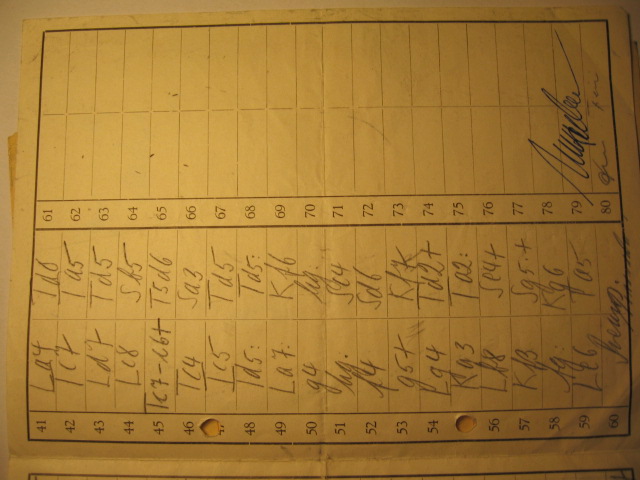 41 La4 Ta8 61
42 Tc7 Ta5 62
43 Ld7 Td5 63
44 Lc8 Sb5 64
45 Tc7-c6+ Tsd6 65
46 Tc4 Sa3 66
Tc5 Td5 67
48 Td5: Td5: 68
49 La7: Kf6 69
50 g4 hg: 70
51 hg. Se4 71
52 f4 Sd6 72
53 g5+ Kf7 73
54 Kg4 Td2+ 74
Kg3 Ta2: 75
56 Lf8 Se4+ 76
57 Kf3 Sg5:+ 77
58 fg: Kg6 78
59 Le6 Ta5 79
60 80